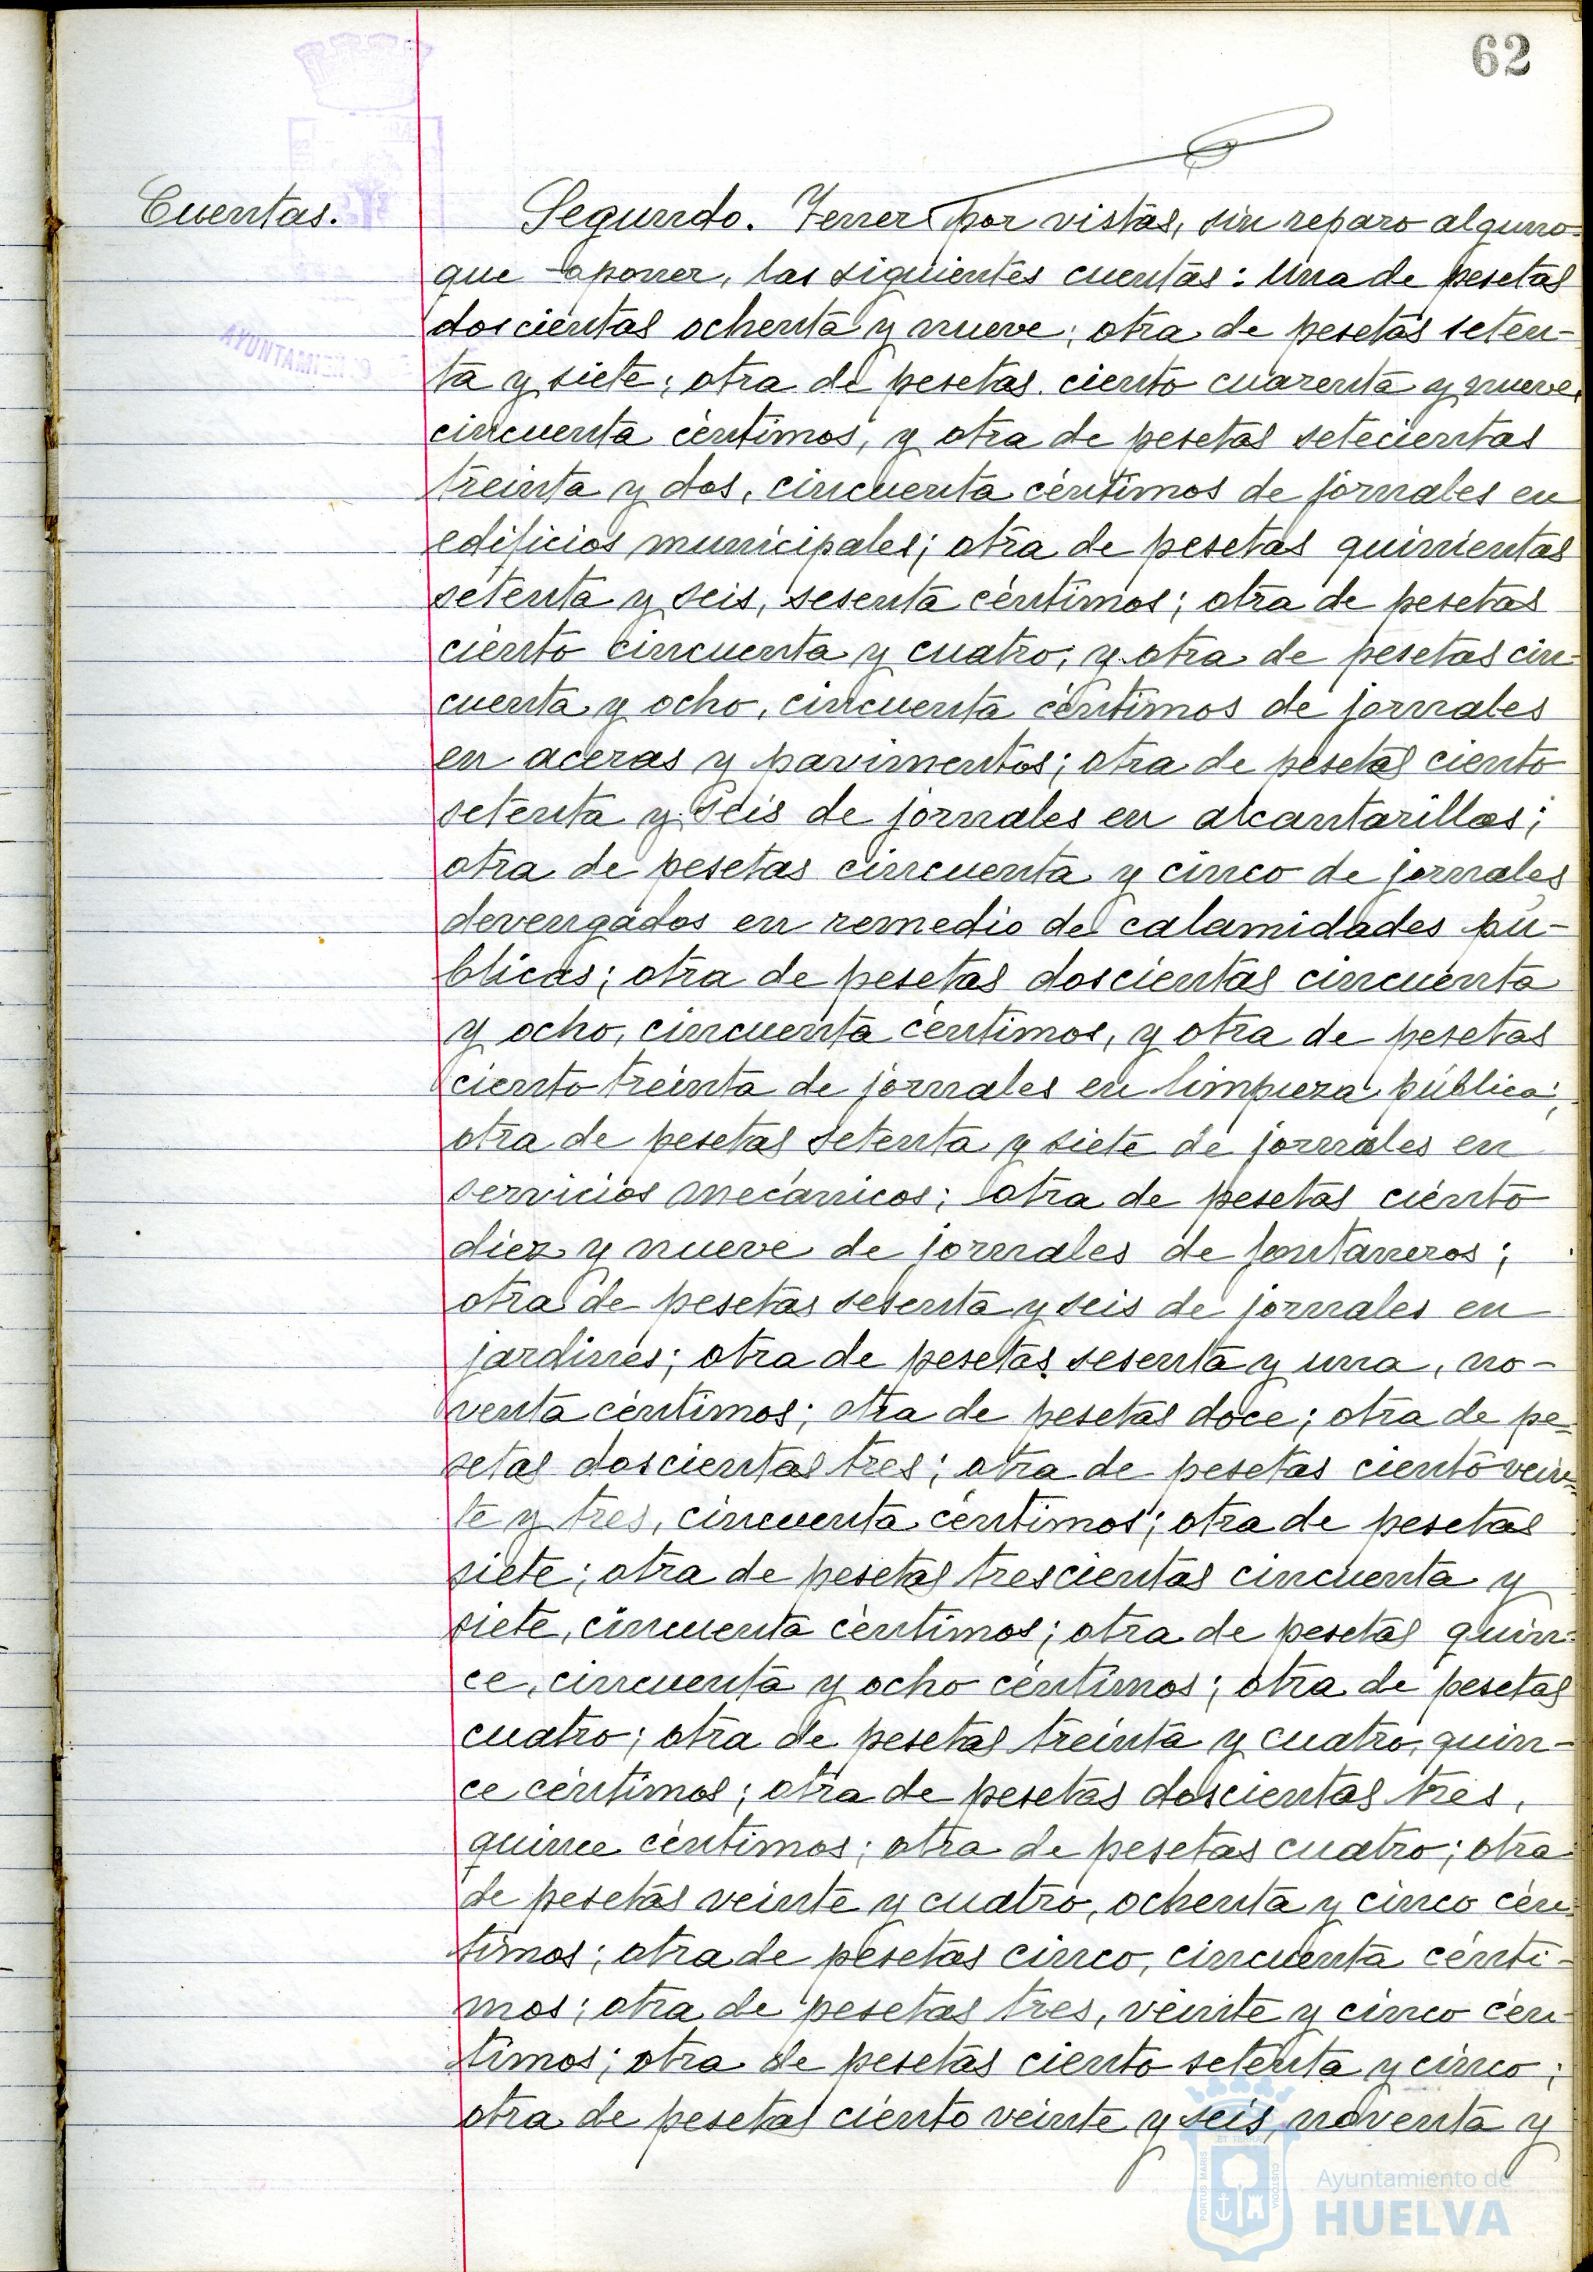 62
Cuentas.
Segundo. Tener por vistas, sin reparo alguno
que oponer, las siguientes cuentas: Una de pesetas
doscientas ochenta y nueve; otra de pesetas seten-
ta y siete; otra de pesetas ciento cuarenta y nueve,
cincuenta céntimos, y otra de pesetas setecientas
treinta y dos, cincuenta céntimos de jornales en
edificios municipales; otra de pesetas quinientas
setenta y seis, sesenta céntimos; otra de pesetas
ciento cincuenta y cuatro; y otra de pesetas cin-
cuenta y ocho, cincuenta céntimos de jornales
en aceras y pavimentos; otra de pesetas ciento
setenta y seis de jornales en alcantarillas;
otra de pesetas cincuenta y cinco de jornales
devengados en remedio de calamidades pú-
blicas; otra de pesetas doscientas cincuenta
y ocho, cincuenta céntimos, y otra de pesetas
ciento treinta de jornales en limpieza pública;
otra de pesetas setenta y siete de jornales en
servicios mecánicos; otra de pesetas ciento
diez y nueve de jornales de fontaneros;
otra de pesetas sesenta y seis de jornales en
jardines; otra de pesetas sesenta y una, no-
venta céntimos; otra de pesetas doce; otra de pe-
setas doscientas tres; otra de pesetas ciento vein-
te y tres, cincuenta céntimos; otra de pesetas
siete; otra de pesetas trescientas cincuenta y
siete, cincuenta céntimos; otra de pesetas quin-
ce, cincuenta y ocho céntimos; otra de pesetas
cuatro; otra de pesetas treinta y cuatro, quin-
ce céntimos; otra de pesetas doscientas tres,
quince céntimos; otra de pesetas cuatro; otra
de pesetas veinte y cuatro, ochenta y cinco cén-
timos; otra de pesetas cinco, cincuenta cénti-
mos; otra de pesetas tres, veinte y cinco cén-
timos; otra de pesetas ciento setenta y cinco;
otra de pesetas ciento veinte y seis, noventa y
PORTUS MARIS
CUSTODIA
Ayuntamiento de
HUELVA
AYUNTAMIENTO